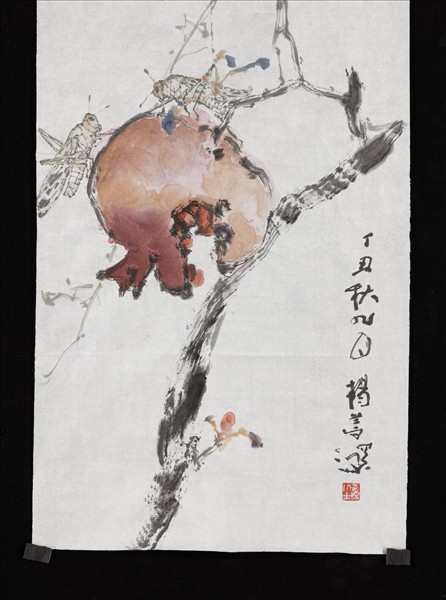 丁丑秋九月楊善深